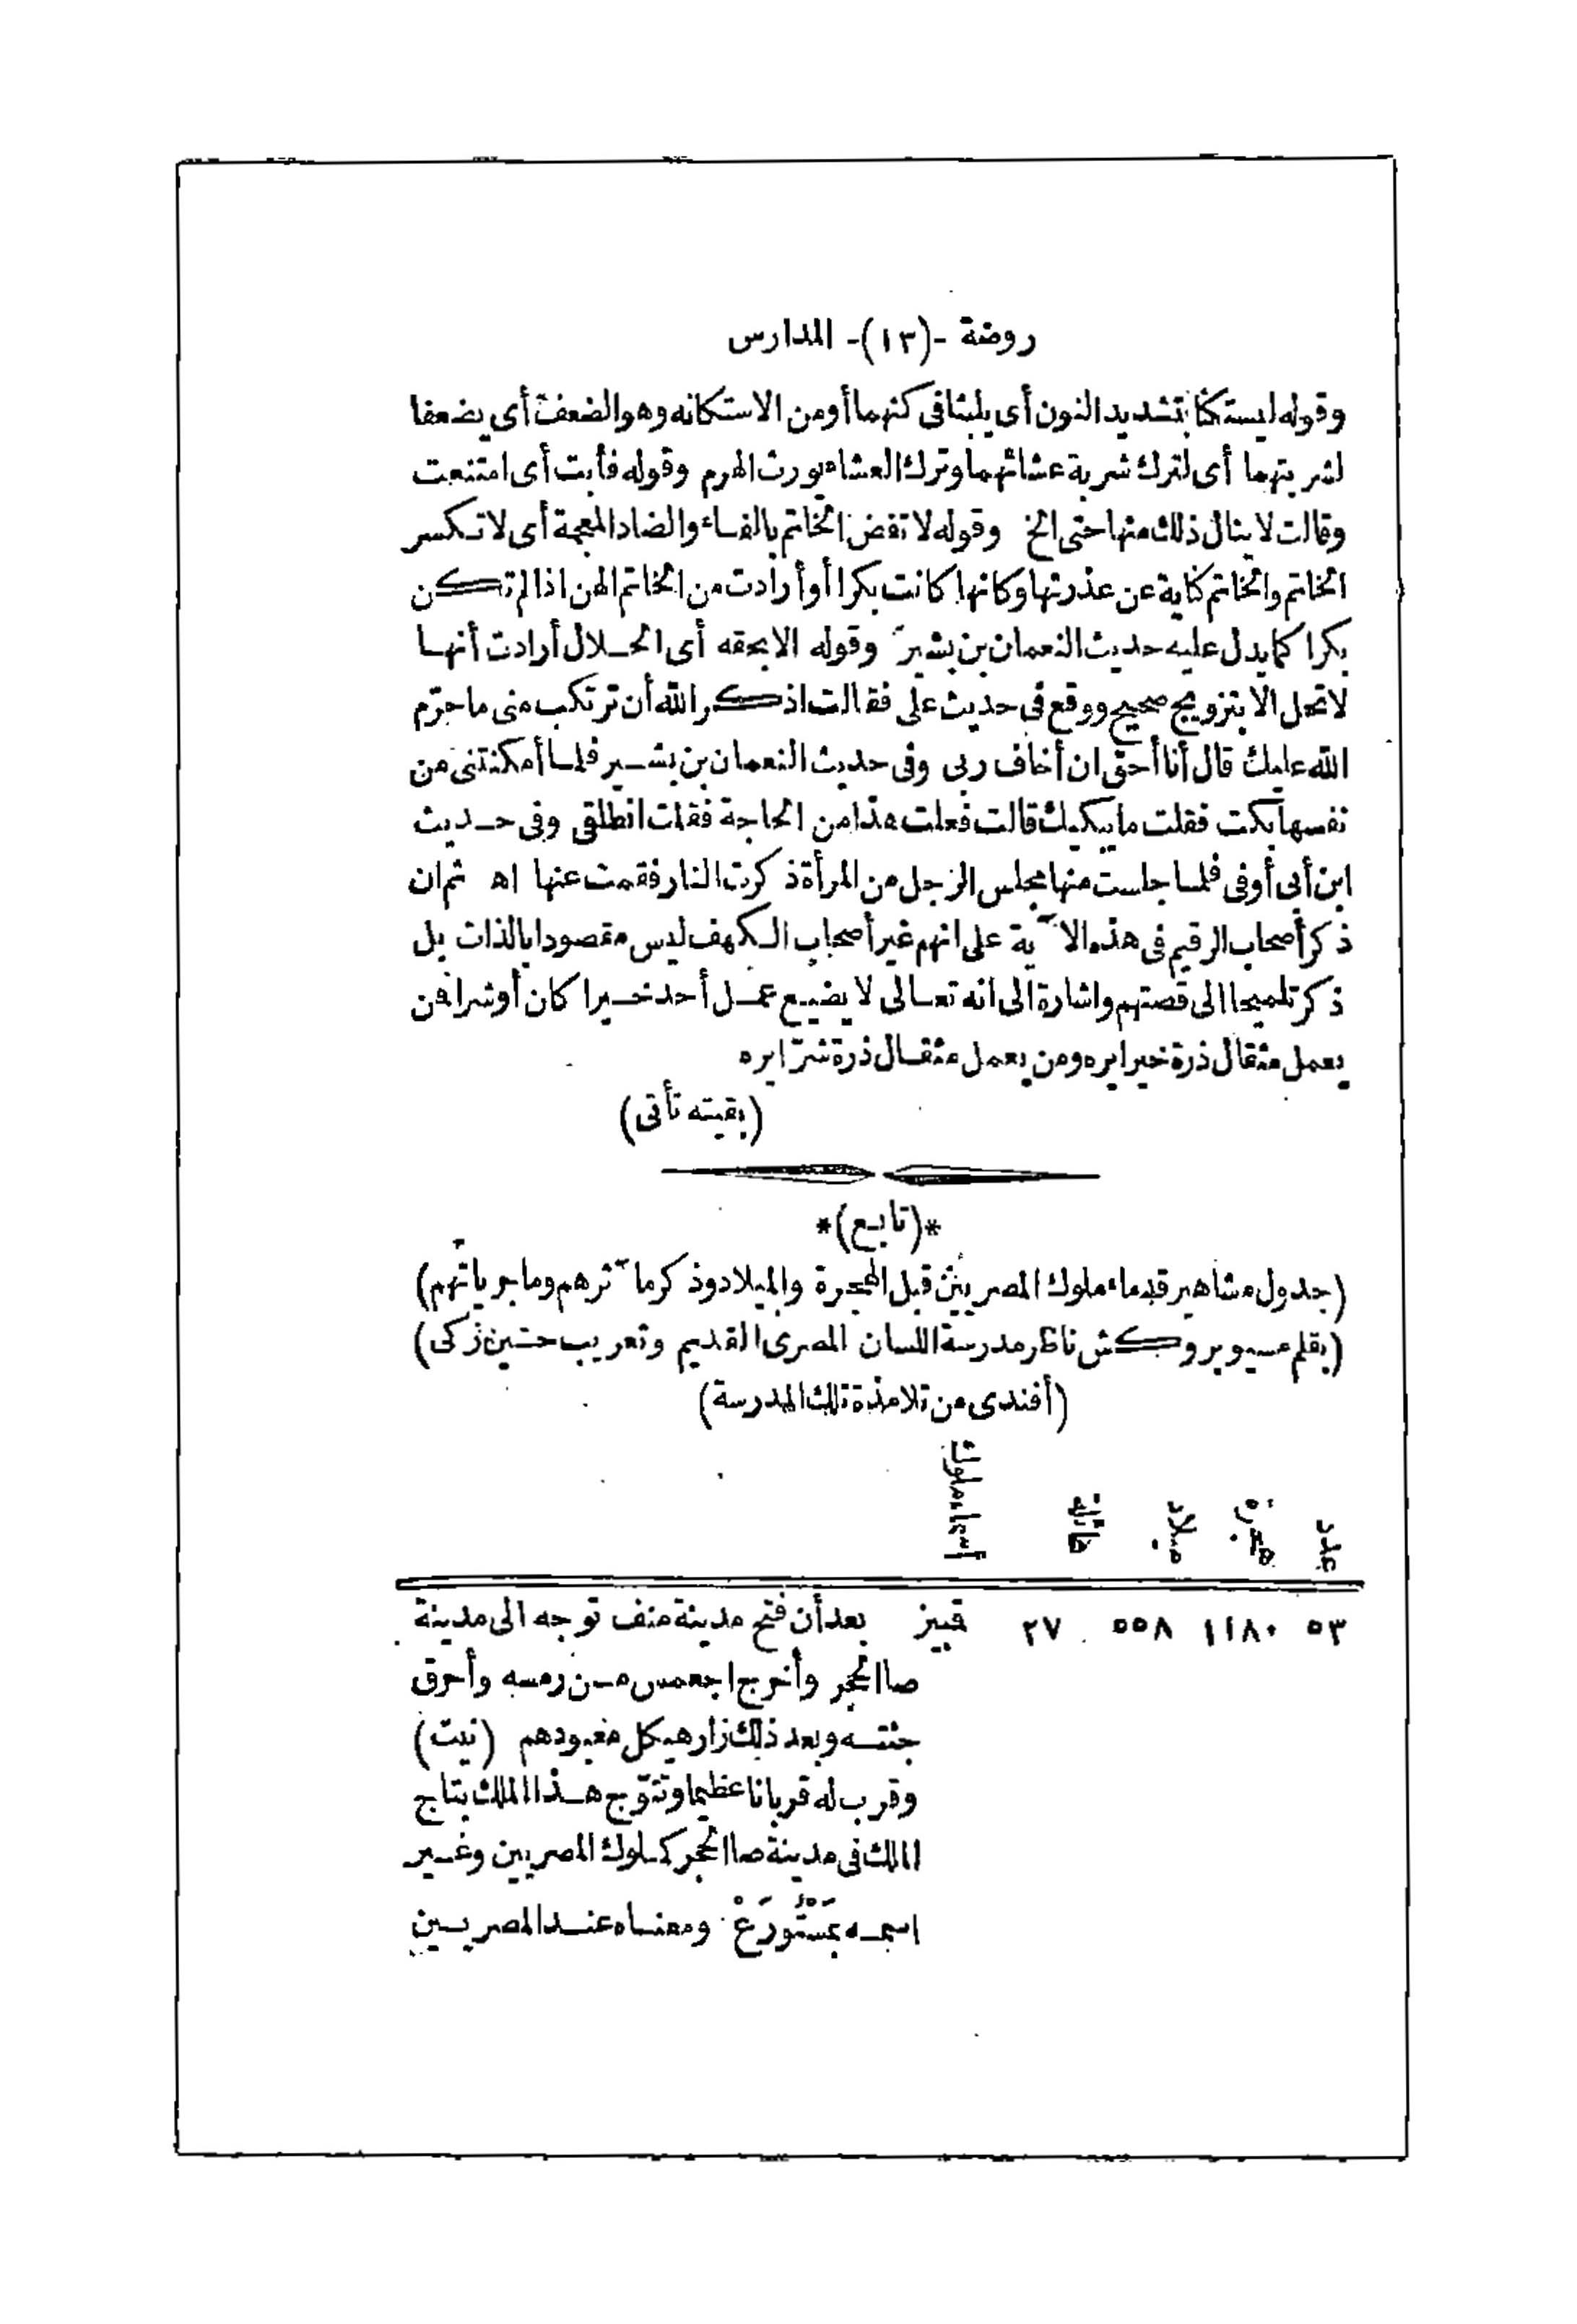 روضة -(١٣)- المدارس
وقوله ليستكنا بتشديد النون أى يلبثا فى كنهما أو من الاستكانه وهو الضعف أى يضعفا
لشربتهما أى لترك شربة عشائهما وترك العشاء يورث الهرم وقوله فأبت أى امتنعت
وقالت لا ينال ذلك منها حتى الخ وقوله لا تفض الخاتم بالفاء والضاد المعجمة أى لا تكسر
الخاتم والخاتم كناية عن عذرتها وكانها كانت بكرا أو أرادت من الخاتم الهن اذا لم تكن
بكرا كما يدل عليه حديث النعمان بن بشير وقوله الا بحقه أى الحلال أرادت أنها
لا تحل الا بتزويج صحيح ووقع فى حديث على فقالت اذكر الله أن ترتكب منى ما حرّم
الله عليك قال أنا أحق ان أخاف ربى وفى حديث النعمان بن بشير فلما أمكنتنى من
نفسها بكت فقلت ما يبكيك قالت فعلت هذا من الحاجة فقلت انطلقى وفى حديث
ابن أبى أوفى فلما جلست منها مجلس الرجل من المرأة ذكرت النار فقمت عنها اه ثم ان
ذكر أصحاب الرقيم فى هذه الآية على انهم غير أصحاب الكهف ليس مقصودا بالذات بل
ذكر تلميحا الى قصتهم واشارة الى انه تعالى لا يضيع عمل أحد خيرا كان أو شرا فمن
يعمل مثقال ذرة خيرا يره ومن يعمل مثقال ذرة شرّا يره
(بقيته تأتى)
*(تابع)*
(جدول مشاهير قدماء ملوك المصريين قبل الهجرة والميلاد وذكر مآثرهم وماجرياتهم)
(بقلم مسيو بروكش ناظر مدرسة اللسان المصرى القديم وتعريب حسين زكى)
(أفندى من تلامذة تلك المدرسة)
عدد هجرة ميلاد عائلة أسماء ملوك
٥٣ ١١٨٠ ٥٥٨ ٢٧ قمبيز بعد أن فتح مدينة منف توجه الى مدينة
صا الحجر وأخرج اجعمس من رمسه وأحرق
جثته وبعد ذلك زار هيكل معبودهم (نيت)
وقرب له قربانا عظيما وتتوّج هذا الملك بتاج
الملك فى مدينة صا الحجر كملوك المصريين وغير
اسمه ومعناه عند المصريين